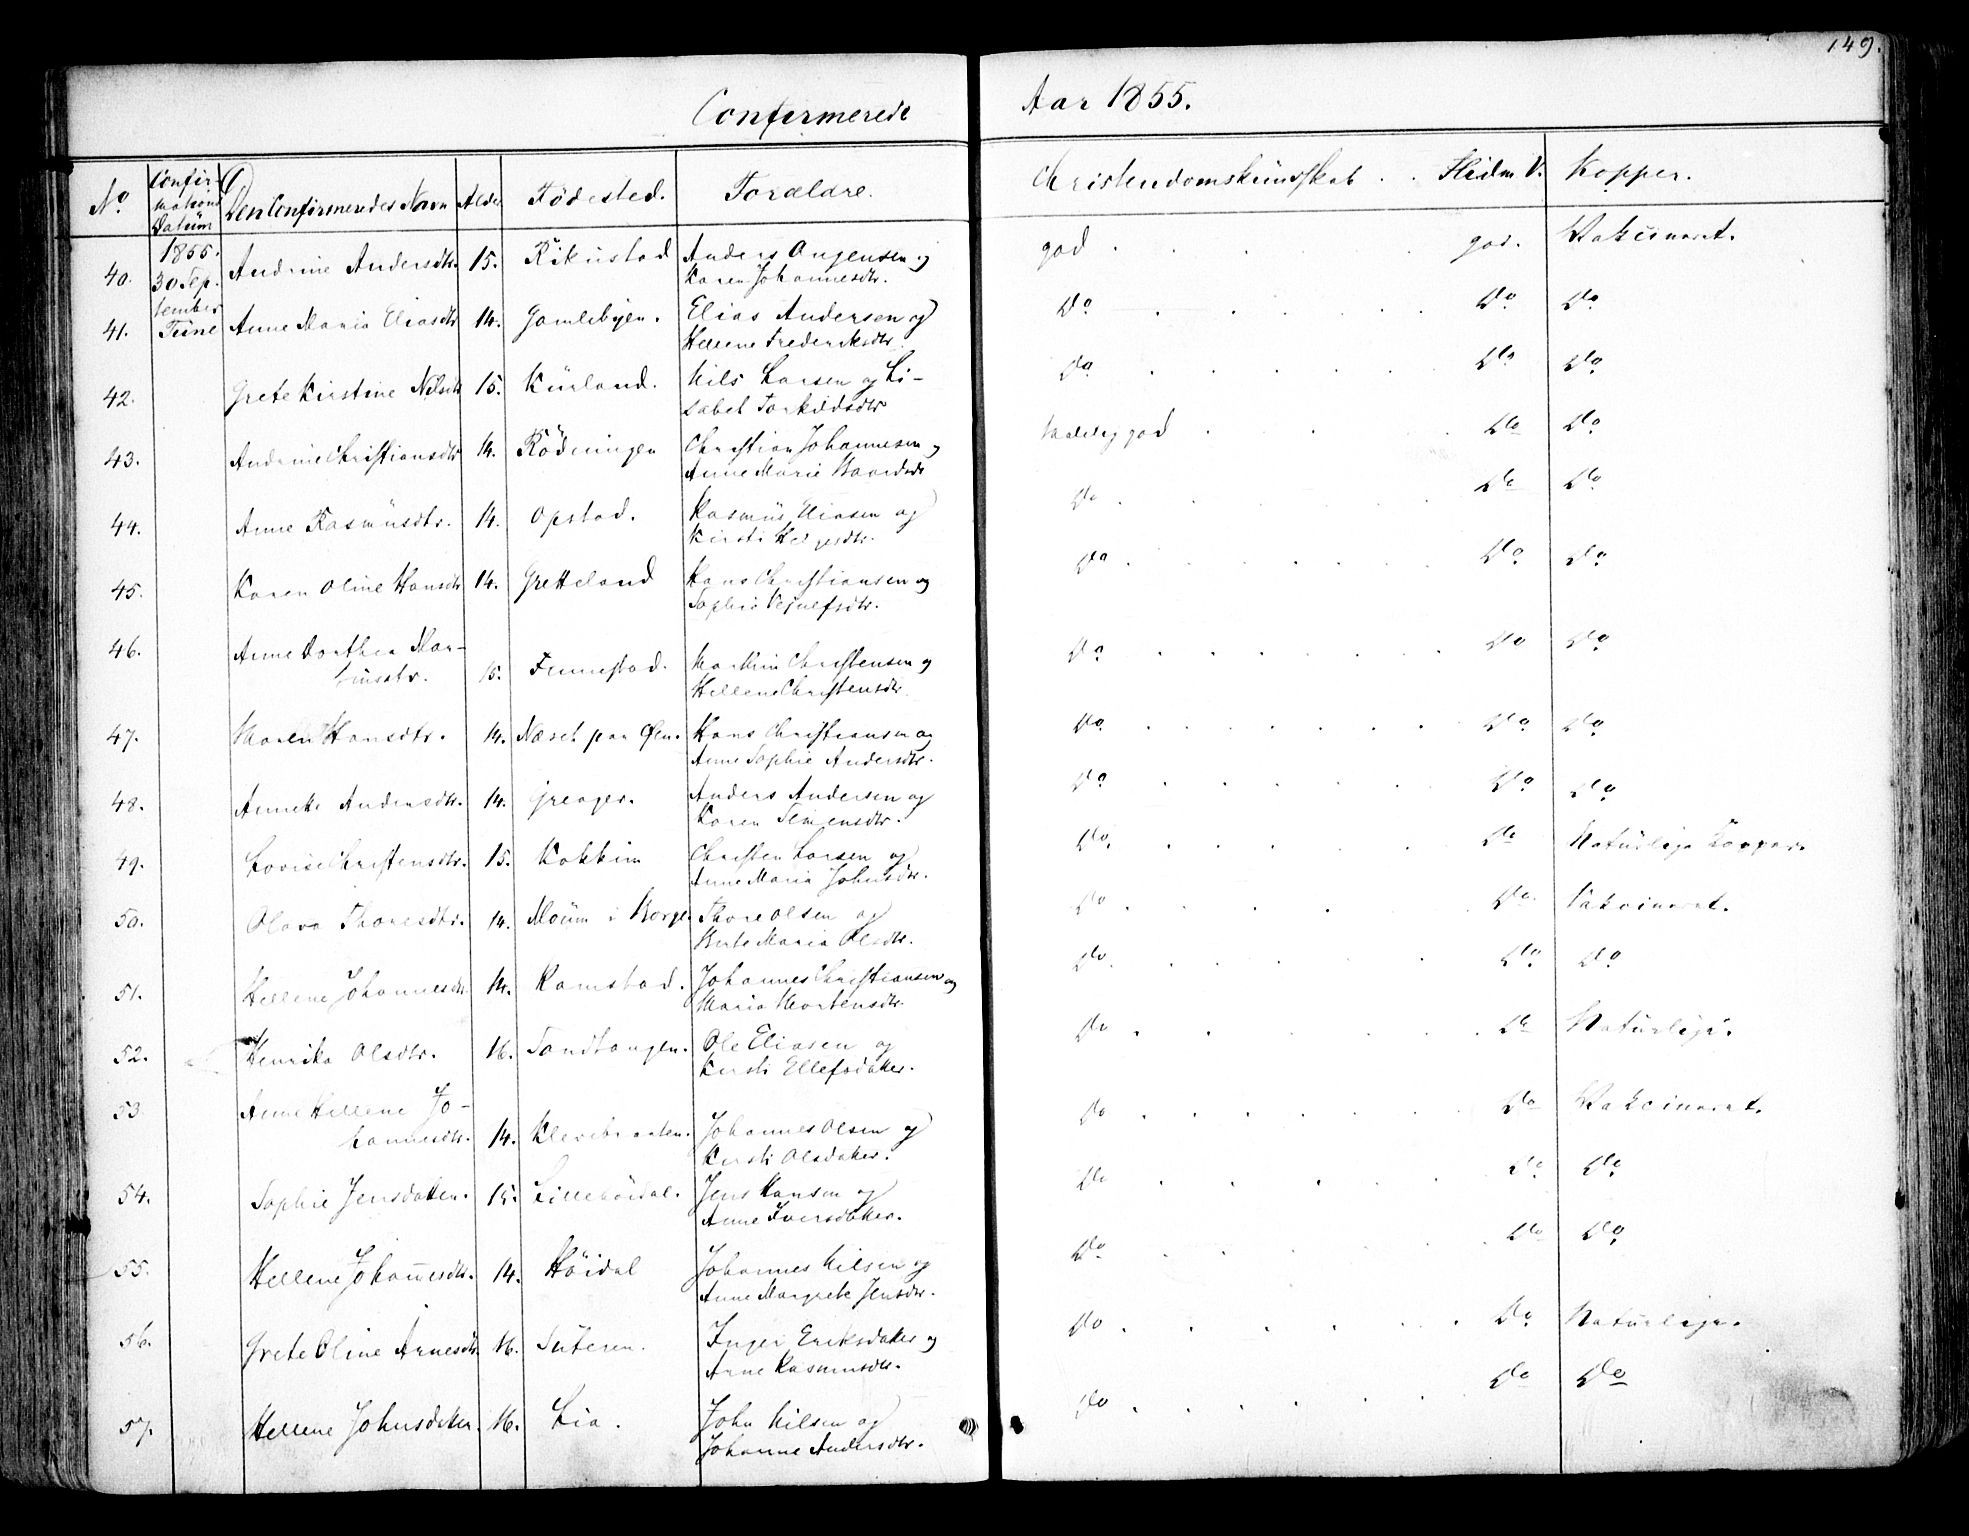 149.
Confirmerede Aar 1855.
No Confirmations Datum Den Confirmeredes Navn Alder Fødested. Forældre. Christendomskundskab . . Flid m V. Kopper.
40. 1855. 30 Sep- Andrine Andersdtr. 15. Rikustad Anders Angensen og god . . . . god. Vakcineret.
Karen Johannesdtr.
41. tember Tune Anne Maria Eliasdtr 14. Gamlebyen. Elias Andersen og Do . . . . . Do Do
Hellene Frederiksdtr.
42. Grete Kirstine Nilsdtr 15. Kurland. Nils Larsen og Li- Do . . . . . Do Do
sabet Torkildsdtr
43. Andrine Christiansdtr 14. Rödningen Christian Johannesen og Meget god . . . . Do Do
Anne Marie Baardsdtr
44. Anne Rasmusdtr. 14. Opstad. Rasmus Eliasen og Do . . . . Do Do
Kirsti Helgesdtr.
45. Karen Oline Hansdtr 14. Gretteland Hans Christiansen og Do . . . . . Do Do
Sophie
46. Anne Dorthea Mar-
tinsdtr. 15. Finnestad. Martin Christensen og Do . . . . . Do Do
Hellene Christensdtr.
47. Maren Hansdtr. 14. Næset paa Øen. Hans Christiansen og Do . . . . . Do Do
Anne Sophie Andersdtr.
48. Anneke Andersdtr. 14. Greager. Anders Andersen og Do . . . . . Do Do
Karen Simensdtr.
49. Lovise Christensdtr. 15. Kokkim Christen Larsen og Do. . . . . . Do Naturlige Kopper.
Anne Maria Johnsdtr.
50. Olava Thoresdtr. 14. Moum i Borge Thore Olsen og Do . . . . Do. Vakcineret.
Berte Maria Olsdtr.
51. Hellene Johannesdtr 14. Ramstad. Johannes Christiansen og Do . . . . . Do Do
Maria Mortensdtr.
52. Henrika Olsdtr. 16. Sandtangen. Ole Eliasen og Do . . . . Do Naturlige.
Kirsti Ellefsdatter.
53 Anne Hellene Jo-
hannesdtr. 14. Klevibraaten. Johannes Olsen og Do . . . . . Do Vakcineret.
Kirsti Olsdatter.
54. Sophie Jensdatter. 15. Lillehöidal. Jens Hansen og Do . . . . . Do Do
Anne Iversdatter.
55. Hellene Johannesdtr. 14. Höidal Johannes Nilsen og Do . . . . Do Do
Anne Margrete Jensdtr.
56. Grete Oline Arnesdtr. 16. Suteren. Inger Eriksdatter og Do . . . . . Do Naturlige.
Arne Rasmusdtr.
57. Hellene Johnsdatter. 16. Lia. John Nilsen og Do . . . . . Do Do
Johanne Andersdtr.